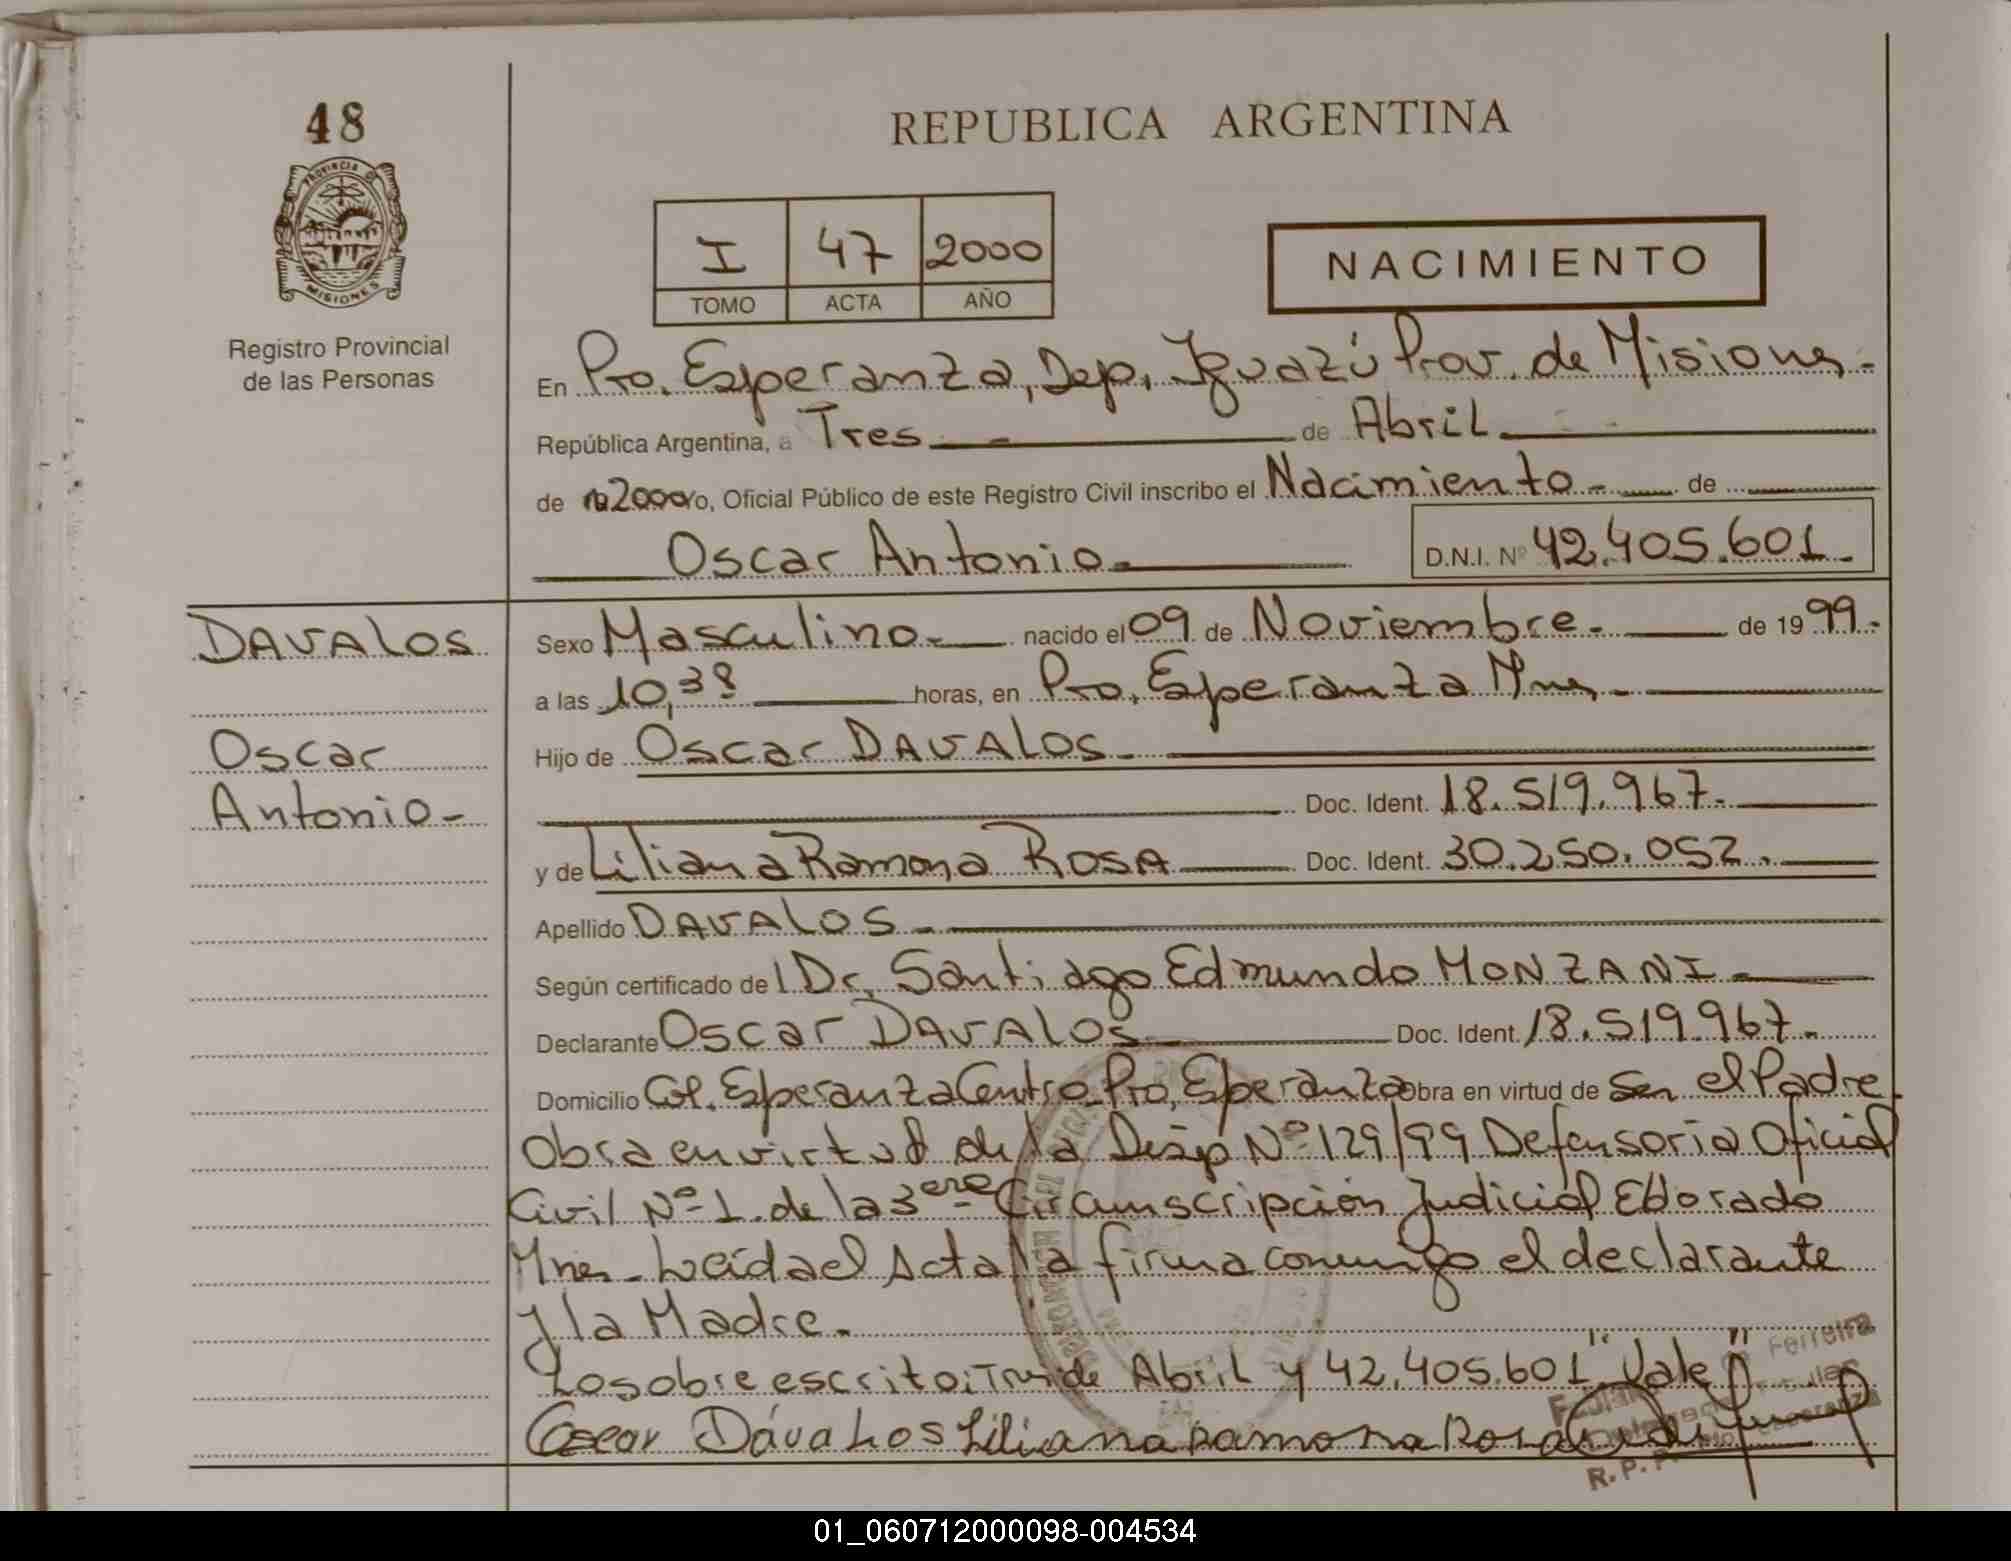 48
REPUBLICA ARGENTINA
PROVINCIA D
MISIONES
Registro Provincial
de las Personas
I 47 2000
TOMO ACTA AÑO
NACIMIENTO
En Pto. Esperanza, Dep. Iguazú Prov. de Misiones.-
República Argentina, a Tres de Abril
de 2000 o, Oficial Público de este Registro Civil inscribo el Nacimiento.- de
Oscar Antonio.
D.N.I. Nº 42.405.601.
DAVALOS
Oscar
Antonio-
Sexo Masculino.- nacido el 09 de Noviembre.- de 1999.-
a las 10,38 horas, en Pto. Esperanza Mnes.-
Hijo de Oscar DAVALOS.-
Doc. Ident. 18.519.967.-
y de Liliana Ramona ROSA Doc. Ident. 30.250.052.
Apellido DAVALOS.-
Según certificado del Dr. Santiago Edmundo MONZANI.-
Declarante Oscar DAVALOS Doc. Ident. 18.519.967.-
Domicilio Col. Esperanza Centro-Pto. Esperanza Obra en virtud de Ser el Padre.
Obra en virtud de la Disp Nº 129/99 Defensoria Oficial
Civil Nº 1. de la 3era Circunscripción Judicial Eldorado
Mnes- Leída el Acta la firma conmigo el declarante
y la Madre.
Lo sobre escrito: Tres de Abril y 42.405.601" Vale"
Oscar Dávalos Liliana Ramona Rosa
Ferreira
R. P. P.
01_060712000098-004534